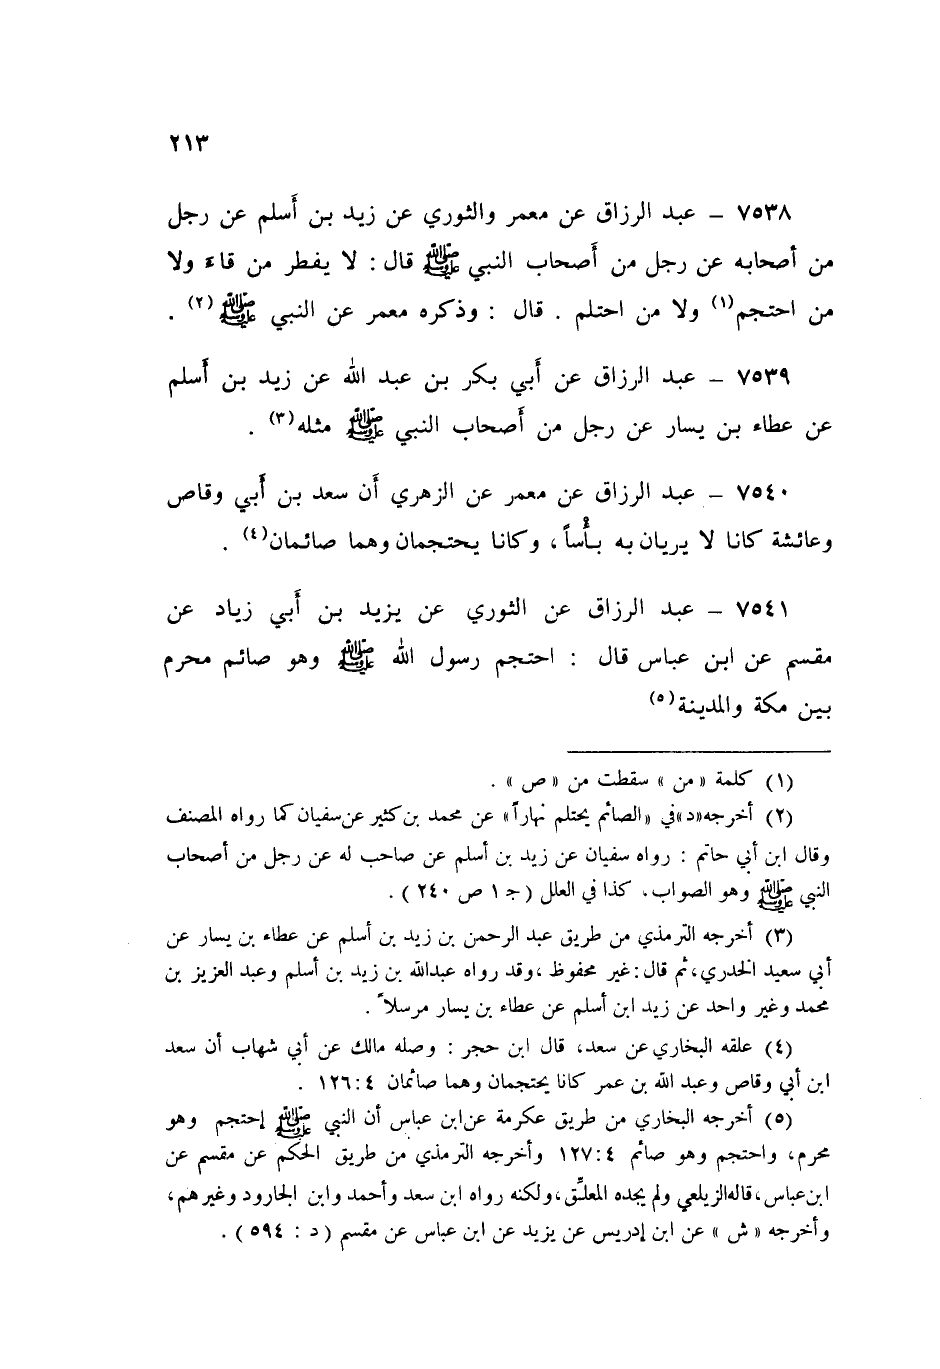 ٢١٣
٧٥٣٨ – عبد الرزاق عن معمر والثوري عن زيد بن أَسلم عن رجل
من أصحابه عن رجل من أَصحاب النبي ﷺ قال : لا يفطر من قاءَ ولا
من احتجم(١) ولا من احتلم . قال : وذكره معمر عن النبي ﷺ (٢) .
٧٥٣٩ – عبد الرزاق عن أَبي بكر بن عبد الله عن زيد بن أَسلم
عن عطاء بن يسار عن رجل من أَصحاب النبي ﷺ مثله(٣) .
٧٥٤٠ – عبد الرزاق عن معمر عن الزهري أَن سعد بن أَبي وقاص
وعائشة كانا لا يريان به بأْساً ، وكانا يحتجمان وهما صائمان(٤) .
٧٥٤١ – عبد الرزاق عن الثوري عن يزيد بن أَبي زياد عن
مقسم عن ابن عباس قال : احتجم رسول الله ﷺ وهو صائم محرم
بين مكة والمدينة(٥)
(١) كلمة « من » سقطت من « ص » .
(٢) أخرجه«د»في «الصائم يحتلم نهاراً» عن محمد بن كثير عن سفيان كما رواه المصنف
وقال ابن أبي حاتم : رواه سفيان عن زيد بن أسلم عن صاحب له عن رجل من أصحاب
النبي ﷺ وهو الصواب، كذا في العلل ( ج ١ ص ٢٤٠ ) .
(٣) أخرجه الترمذي من طريق عبد الرحمن بن زيد بن أسلم عن عطاء بن يسار عن
أبي سعيد الخدري، ثم قال: غير محفوظ ، وقد رواه عبدالله بن زيد بن أسلم وعبد العزيز بن
محمد وغير واحد عن زيد ابن أسلم عن عطاء بن يسار مرسلاً .
(٤) علقه البخاري عن سعد، قال ابن حجر : وصله مالك عن أبي شهاب أن سعد
ابن أبي وقاص وعبد الله بن عمر كانا يحتجمان وهما صائمان ٤ :١٢٦ .
(٥) أخرجه البخاري من طريق عكرمة عن ابن عباس أن النبي ﷺ إحتجم وهو
محرم، واحتجم وهو صائم ٤ :١٢٧ وأخرجه الترمذي من طريق الحكم عن مقسم عن
ابن عباس ، قاله الزيلعي ولم يجده المعلِّق ، ولكنه رواه ابن سعد وأحمد وابن الجارود وغيرهم ،
وأخرجه « ش » عن ابن إدريس عن يزيد عن ابن عباس عن مقسم ( د : ٥٩٤ ) .